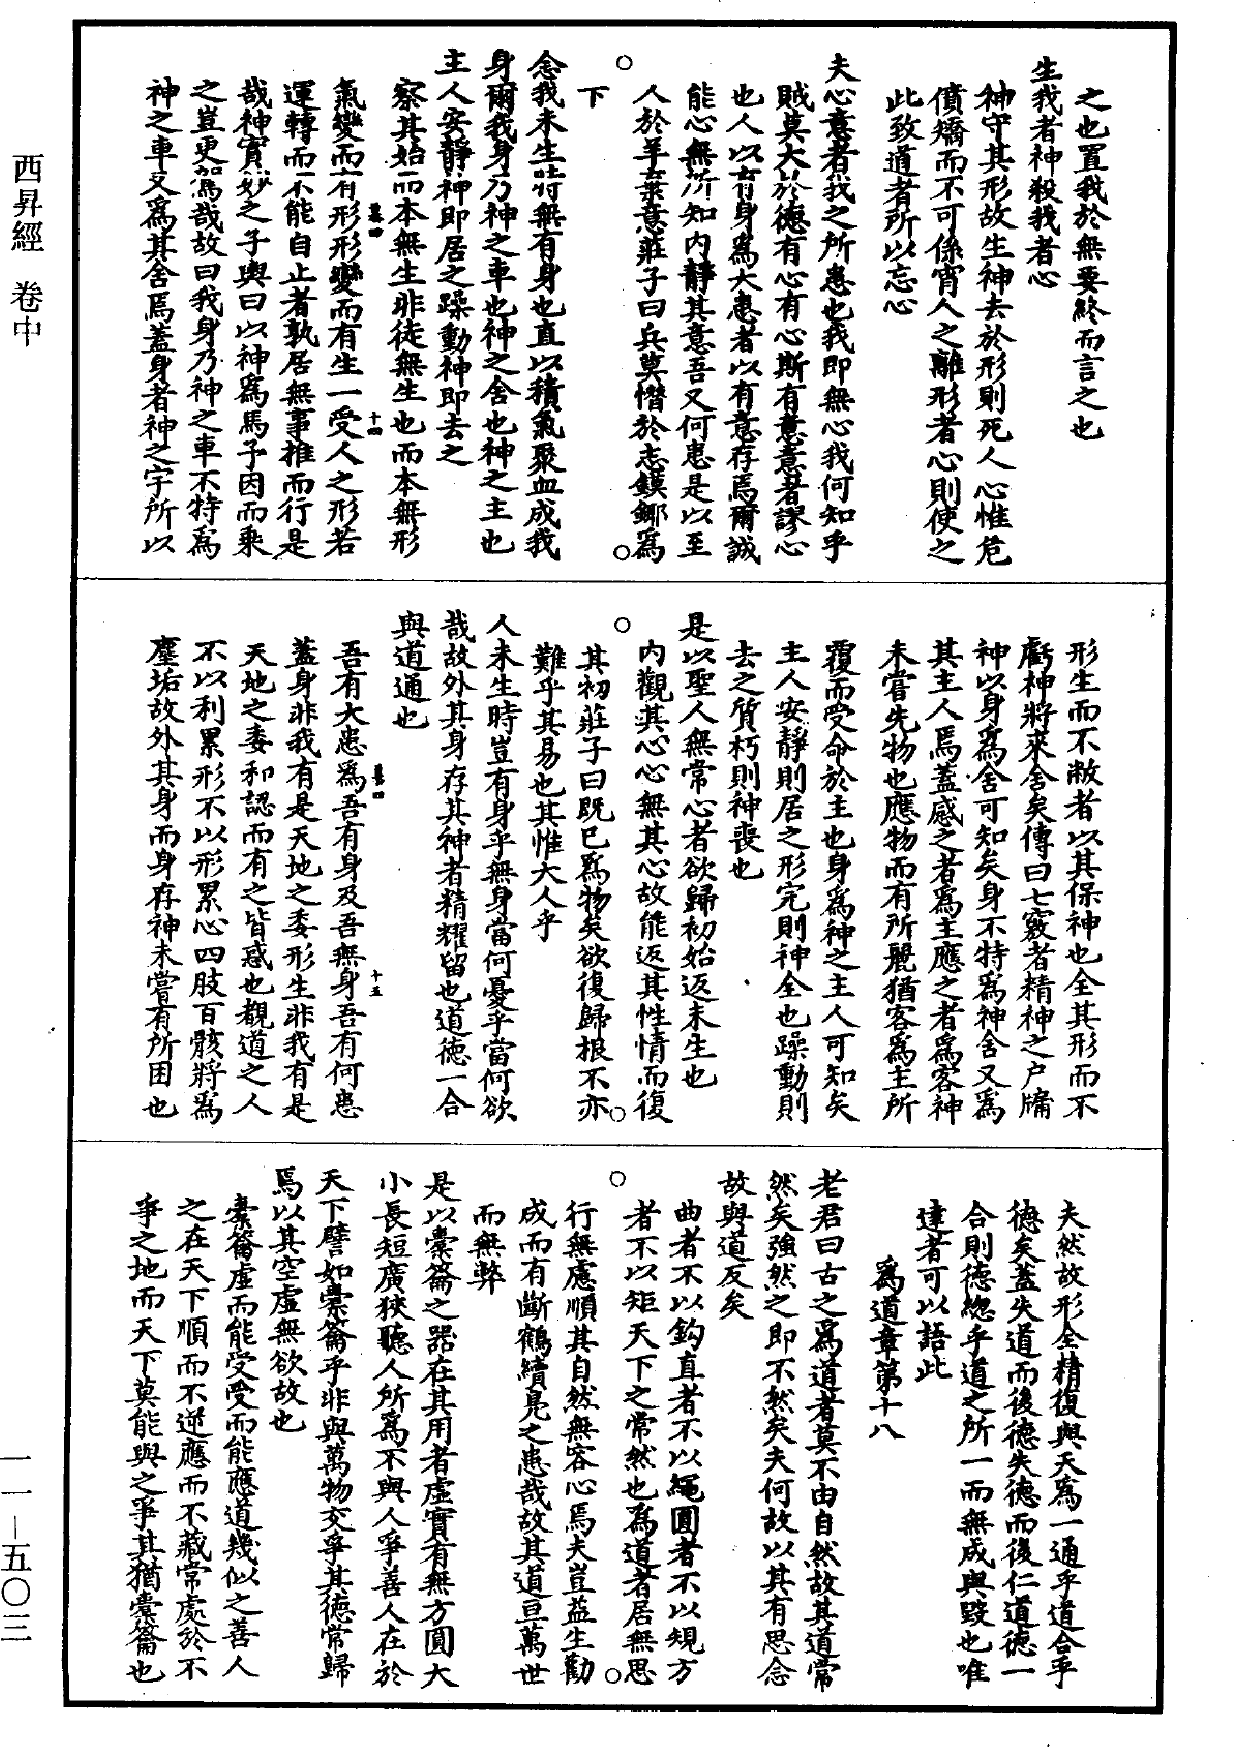 西昇經 卷中
之也置我於無要終而言之也
生我者神殺我者心
神守其形故生神去於形則死人心惟危
僨矯而不可係宵人之離形者心則使之
此致道者所以忘心
夫心意者我之所患也我即無心我何知乎
賊莫大於德有心有心斯有意意者謬心
也人以有身爲大患者以有意存焉爾誠
能心無所知內靜其意吾又何患是以至
人於羊棄意莊子曰兵莫憯於志鏌鎁爲
下
念我未生時無有身也直以積氣聚血成我
身爾我身乃神之車也神之舍也神之主也
主人安靜神即居之躁動神即去之
察其始而本無生非徒無生也而本無形
氣變而有形形變而有生一受人之形若
運轉而不能自止者孰居無事推而行是
哉神實妙之子輿曰以神爲馬予因而乘
之豈更駕哉故曰我身乃神之車不特爲
神之車又爲其舍焉蓋身者神之宇所以
形生而不敝者以其保神也全其形而不
虧神將來舍矣傳曰七竅者精神之户牖
神以身爲舍可知矣身不特爲神舍又爲
其主人焉蓋感之者爲主應之者爲客神
未嘗先物也應物而有所麗猶客爲主所
覆而受命於主也身爲神之主人可知矣
主人安靜則居之形完則神全也躁動則
去之質朽則神喪也
是以聖人無常心者欲歸初始返未生也
內觀其心心無其心故能返其性情而復
其初莊子曰既已爲物矣欲復歸根不亦
難乎其易也其惟大人乎
人未生時豈有身乎無身當何憂乎當何欲
哉故外其身存其神者精耀留也道德一合
與道通也
吾有大患爲吾有身及吾無身吾有何患
蓋身非我有是天地之委形生非我有是
天地之委和認而有之皆惑也觀道之人
不以利累形不以形累心四肢百骸將爲
塵垢故外其身而身存神未嘗有所困也
夫然故形全精復與天爲一通乎道合乎
德矣蓋失道而後德失德而後仁道德一
合則德總乎道之所一而無成與毀也唯
達者可以語此
爲道章第十八
老君曰古之爲道者莫不由自然故其道常
然矣強然之即不然矣夫何故以其有思念
故與道反矣
曲者不以鈎直者不以繩圓者不以規方
者不以矩天下之常然也爲道者居無思
行無慮順其自然無容心焉夫豈益生勸
成而有斷鶴續鳧之患哉故其道亘萬世
而無弊
是以橐籥之器在其用者虛實有無方圓大
小長短廣狹聽人所爲不與人爭善人在於
天下譬如橐籥乎非與萬物交爭其德常歸
焉以其空虛無欲故也
橐籥虛而能受受而能應道幾似之善人
之在天下順而不逆應而不藏常處於不
爭之地而天下莫能與之爭其猶橐籥也
一一—五〇三